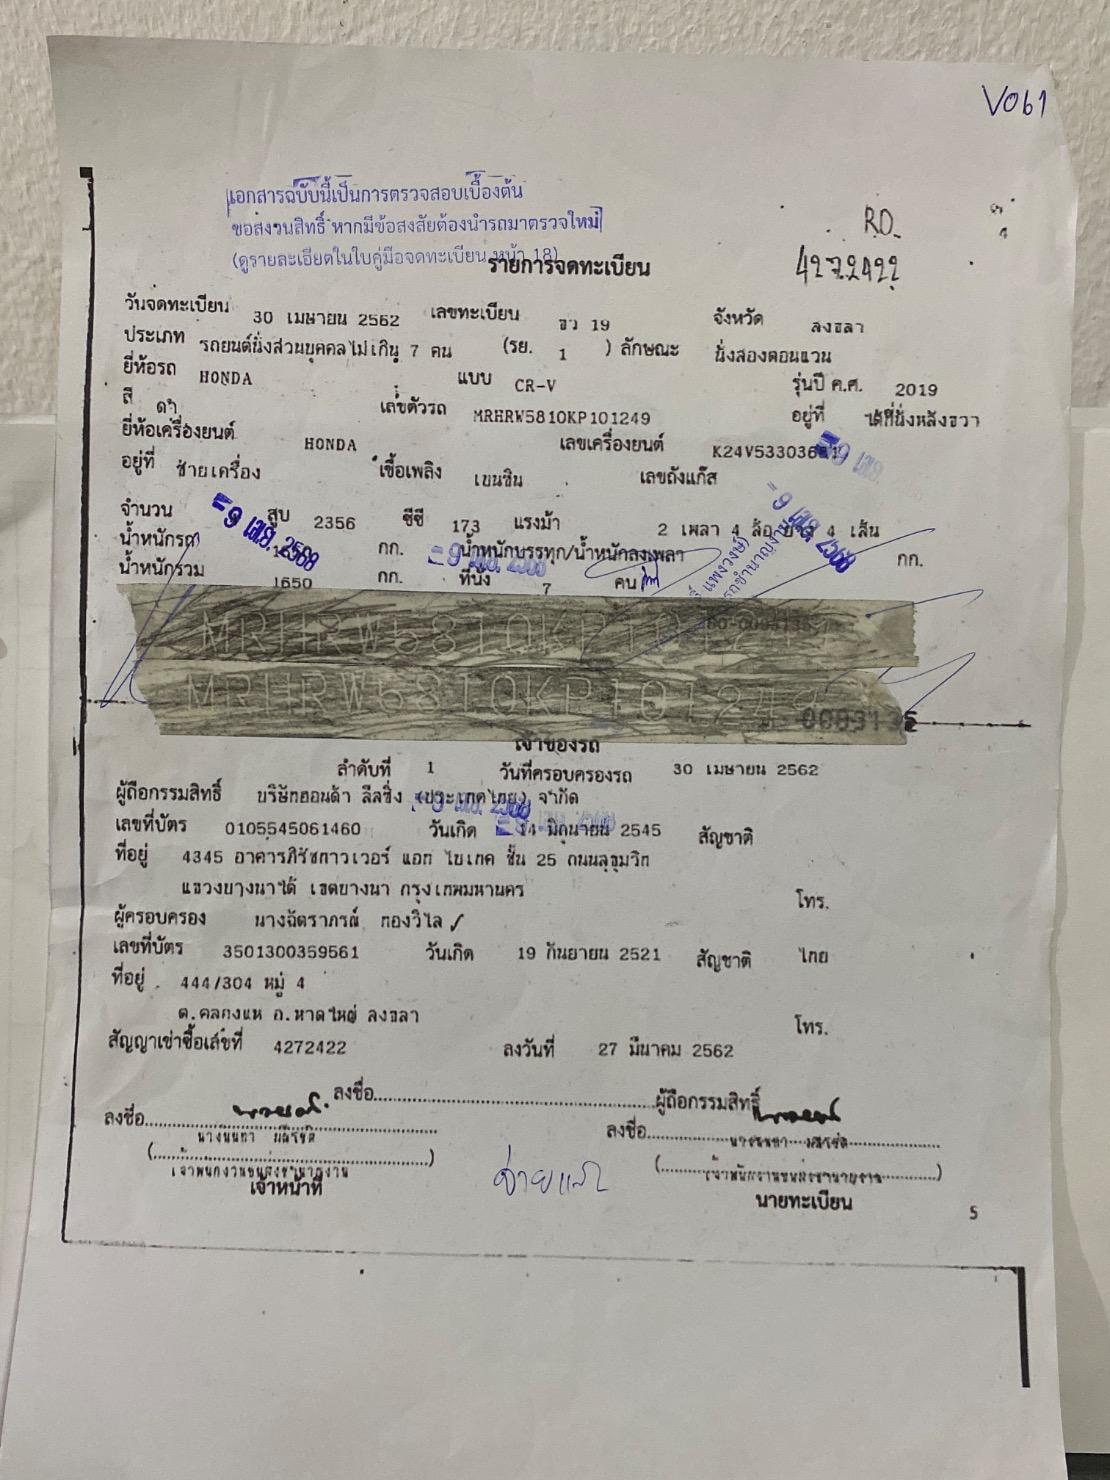 V061
เอกสารฉบับนี้เป็นการตรวจสอบเบื้องต้น
ขอสงวนสิทธิ์ หากมีข้อสงสัยต้องนำรถมาตรวจใหม่
(ดูรายละเอียดในใบคู่มือจดทะเบียน หน้า 18)
R.D.
4272422
รายการจดทะเบียน
วันจดทะเบียน 30 เมษายน 2562 เลขทะเบียน 19 จังหวัด สงขลา
ประเภท รถยนต์นั่งส่วนบุคคลไม่เกิน 7 คน (รย. 1 ) ลักษณะ นั่งสองตอนแวน
ยี่ห้อรถ HONDA แบบ CR-V รุ่นปี ค.ศ. 2019
สี ดำ เลขตัวรถ MRHRW5810KP101249 อยู่ที่ ใต้ที่นั่งหลังขวา
ยี่ห้อเครื่องยนต์ HONDA เลขเครื่องยนต์
อยู่ที่ ซ้ายเครื่อง เชื้อเพลิง เบนซิน เลขถังแก๊ส
จำนวน สูบ 2356 ซีซี 173 แรงม้า 2 เพลา 4 ล้อ ยาง 4 เส้น
น้ำหนักรถ กก. น้ำหนักบรรทุก/น้ำหนักลงเพลา กก.
น้ำหนักรวม 1650 กก. ที่นั่ง 7 คน
-9 เม.ย. 2568
-9 เม.ย. 2568
-9 เม.ย. 2568
MRHRW5810KP10124
MRHRW5810KP101249
เจ้าของรถ
ลำดับที่ 1 วันที่ครอบครองรถ 30 เมษายน 2562
ผู้ถือกรรมสิทธิ์ บริษัทฮอนด้า ลีสซิ่ง (ประเทศไทย) จำกัด
เลขที่บัตร 0105545061460 วันเกิด 14 มิถุนายน 2545 สัญชาติ
ที่อยู่ 4345 อาคารภิรัชทาวเวอร์ แอท ไบเทค ชั้น 25 ถนนสุขุมวิท
แขวงบางนาใต้ เขตบางนา กรุงเทพมหานคร โทร.
ผู้ครอบครอง นางฉัตราภรณ์ ทองวิไล ✓
เลขที่บัตร 3501300359561 วันเกิด 19 กันยายน 2521 สัญชาติ ไทย
ที่อยู่ 444/304 หมู่ 4
ต.คลองแห อ.หาดใหญ่ สงขลา โทร.
สัญญาเช่าซื้อเลขที่ 4272422 ลงวันที่ 27 มีนาคม 2562
ลงชื่อ ผู้ถือกรรมสิทธิ์
ลงชื่อ ลงชื่อ
เจ้าพนักงานขนส่งชำนาญงาน เจ้าพนักงานขนส่งชำนาญงาน
เจ้าหน้าที่ จ่ายแล้ว นายทะเบียน
5